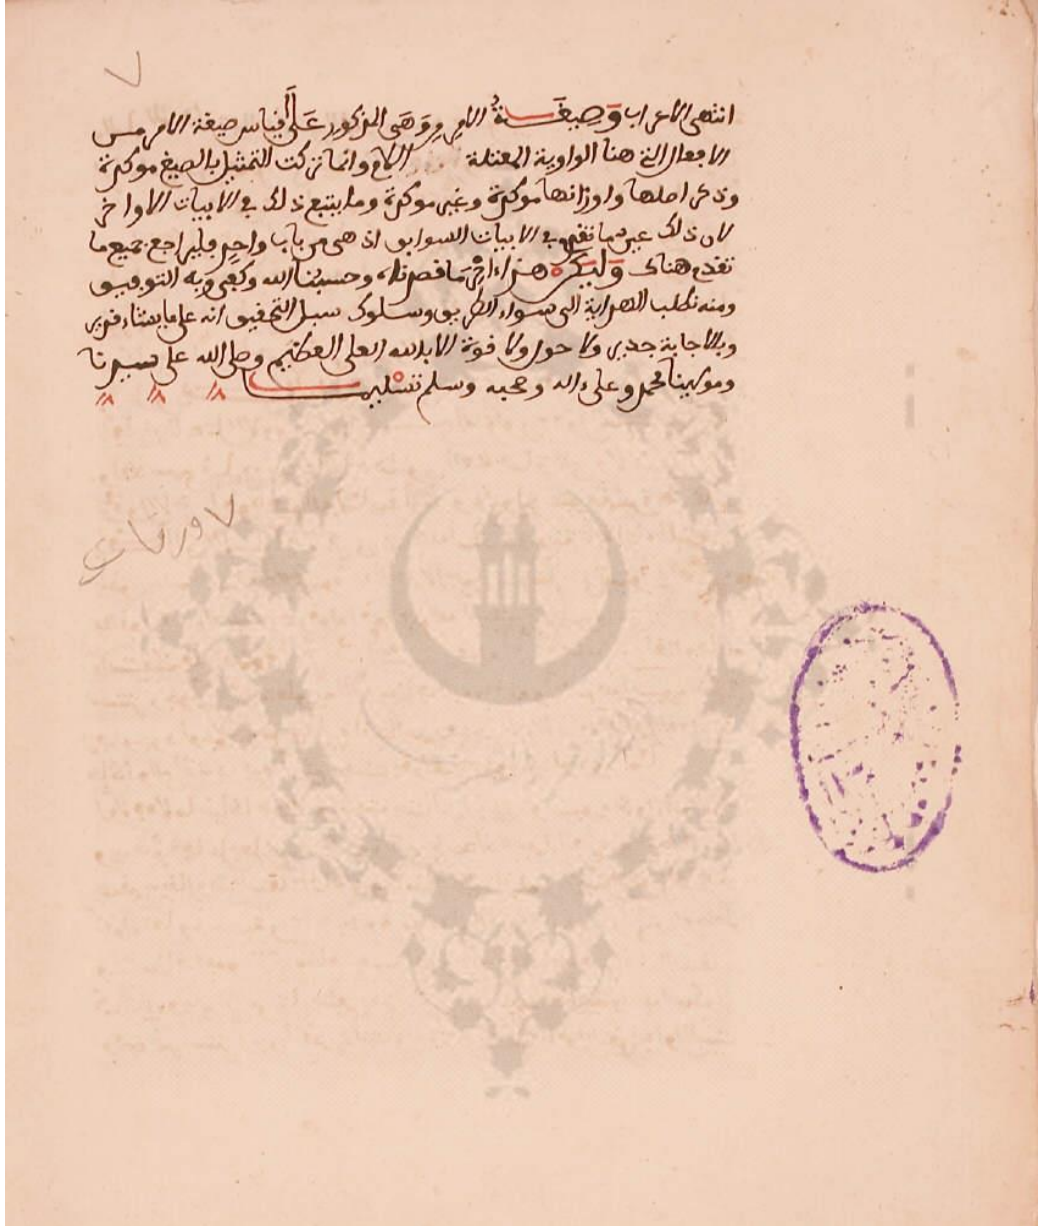 ٧
انتهى الاعراب وَصيغَـــة الامر وهَى المذكور عَلَى قياس صيغة الامر مـن
الافعال التى هنا الواوية المعتلة اللام وانما تركت التمثيل بالصيغ موكدة
وذكر اصلها واوزانها موكدة وغير موكدة وما يتبع ذلك في الابيات الاواخر
لان ذلك عين ما تقدم في الابيات السوابق اذ هى من باب واحد فليراجع جميع ما
تقدم هناك وَليَكن هذا ءاخِرَ مَا قصدناه وحسبُنا الله وكَفى وَبه التوفيـق
ومنه نطلب الهداية الى سواء الطريق وسلوك سبل التحقيق انه على ما يشاء قدير
وبالاجابة جدير ولا حول ولا قوة الا بالله العلى العظيم وصلى الله على سيدنا
ومولينا محمد وعلى ءاله وصحبه وسلم تسْليمـــا
٧ ورقات